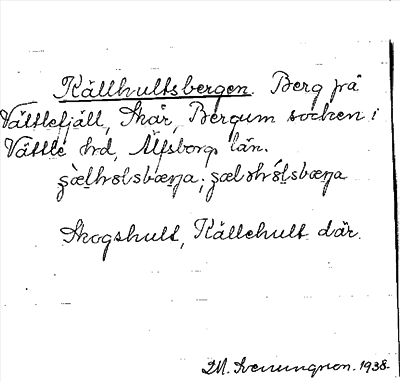 Källhultsbergen. Berg på
Vättlefjäll, Skår, Bergum socken i
Vättle hrd, Älfsborgs län.
Skogshult, Källehult där.
M. Svenungson. 1938.